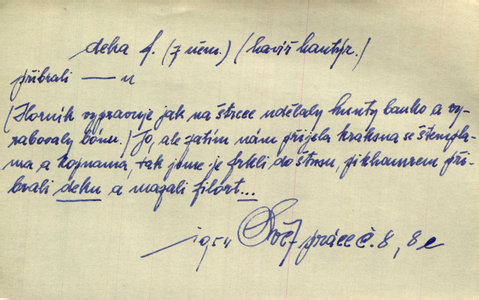 deka f. (z něm.) (havíř. hantýr.)
přibrali —— u
(Horník vypravuje jak na štrece udělaly hunty banko a vy-
rabovaly bónu.) Jo, ale zatim nám přijela kraksna se štempla-
ma a kopnama, tak jsme je frkli do štosu, pikhamrem při-
brali deku a mazali filort...
1954 práce č. 8, 8e